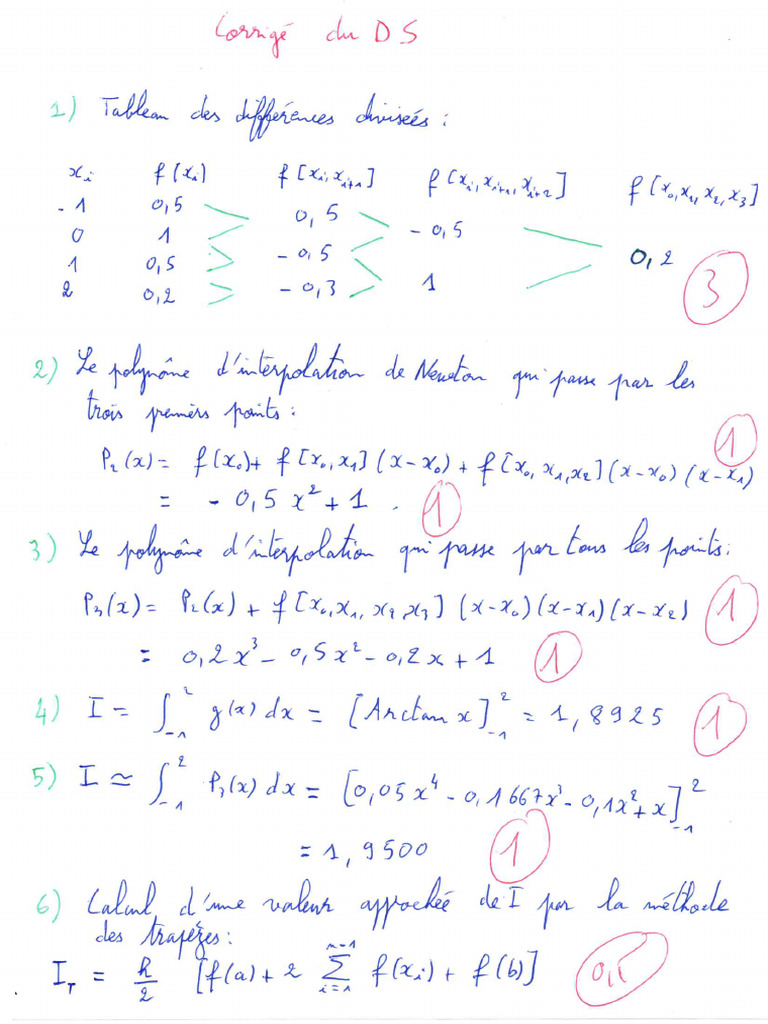 Corrigé du DS
1) Tableau des différences divisées :
xi f(xi) f[xi,xi+1] f[xi,xi+1,xi+2] f[x0,x1,x2,x3]
-1 0,5
0,5
0 1 -0,5
-0,5 0,2
1 0,5 3
2 0,2 -0,3 1
2) Le polynôme d'interpolation de Newton qui passe par les
trois premiers points :
1
P2(x) = f(x0) + f[x0,x1](x-x0) + f[x0,x1,x2](x-x0)(x-x1)
= -0,5 x² + 1. 1
3) Le polynôme d'interpolation qui passe par tous les points :
P3(x) = P2(x) + f[x0,x1,x2,x3](x-x0)(x-x1)(x-x2) 1
= 0,2x³ - 0,5x² - 0,2x + 1 1
4) I = ∫_{-1}^{2} g(x) dx = [Arctan x]_{-1}^{2} = 1,8925 1
5) I ≃ ∫_{-1}^{2} P3(x) dx = [0,05x⁴ - 0,1667x³ - 0,1x² + x]_{-1}^{2}
= 1,9500 1
6) Calcul d'une valeur approchée de I par la méthode
des trapézes :
I_T = h/2 [f(a) + 2 ∑_{i=1}^{n-1} f(xi) + f(b)] 0,5